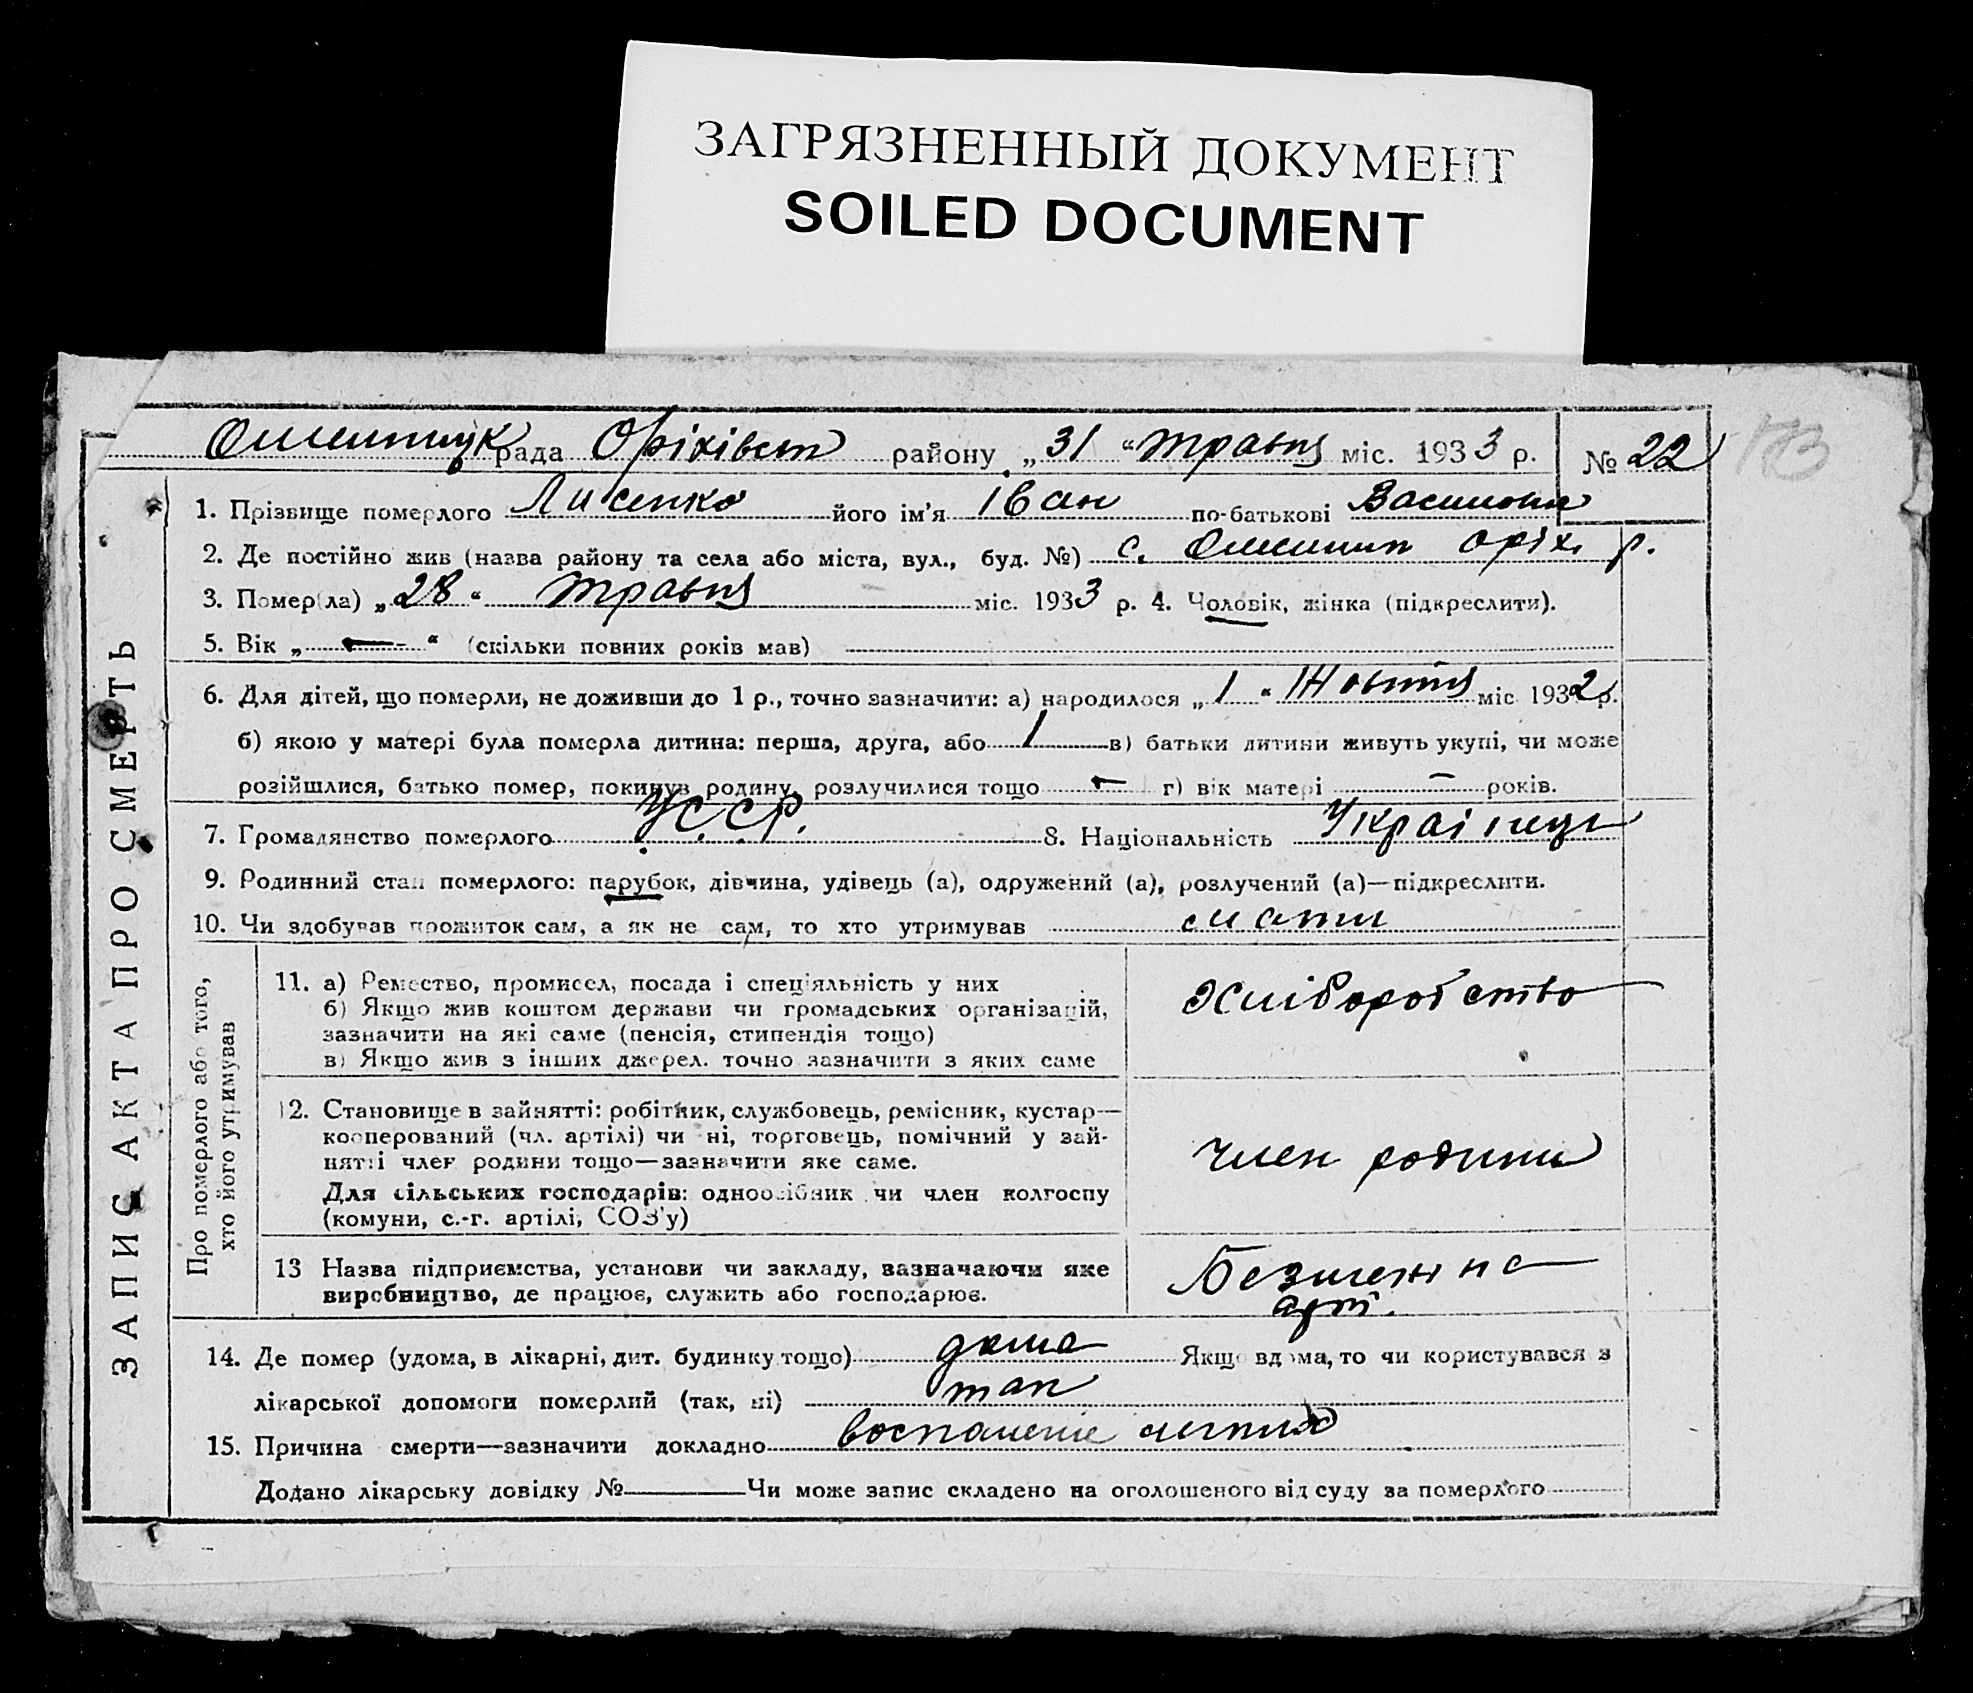 ЗАГРЯЗНЕННЫЙ ДОКУМЕНТ
SOILED DOCUMENT
рада Оріхівськ району „31“ травня міс. 1933 р. № 22
173
ЗАПИС АКТА ПРО СМЕРТЬ
1. Прізвище померлого Лисенко його ім'я Іван по-батькові
2. Де постійно жив (назва району та села або міста, вул., буд. №) с. оріх. р.
3. Помер(ла) „28“ травня міс. 1933 р. 4. Чоловік, жінка (підкреслити).
5. Вік „—“ (скільки повних років мав)
6. Для дітей, що померли, не доживши до 1 р., точно зазначити: а) народилося „1“ Жовтня міс. 1932 р.
б) якою у матері була померла дитина: перша, друга, або 1 в) батьки дитини живуть укупі, чи може
розійшлися, батько помер, покинув родину, розлучилися тощо — г) вік матері — років.
7. Громадянство померлого УССР. 8. Національність Українець
9. Родинний стан померлого: парубок, дівчина, удівець (а), одружений (а), розлучений (а)—підкреслити.
10. Чи здобував прожиток сам, а як не сам, то хто утримував мати
Про померлого або того,
хто його утримував
11. а) Ремество, промисел, посада і спеціяльність у них
б) Якщо жив коштом держави чи громадських організацій,
зазначити на які саме (пенсія, стипендія тощо)
в) Якщо жив з інших джерел. точно зазначити з яких саме
Хліборобство
12. Становище в зайнятті: робітник, службовець, ремісник, кустар—
кооперований (чл. артілі) чи ні, торговець, помічний у зай-
нятті член родини тощо—зазначити яке саме.
Для сільських господарів: одноосібник чи член колгоспу
(комуни, с.-г. артілі, СОЗ'у)
член родини
13 Назва підприємства, установи чи закладу, зазначаючи яке
виробництво, де працює, служить або господарює.
арт.
14. Де помер (удома, в лікарні, дит. будинку тощо) дома Якщо вдома, то чи користувався з
лікарської допомоги померлий (так, ні) так
15. Причина смерти—зазначити докладно воспаленіе легких
Додано лікарську довідку № Чи може запис складено на оголошеного від суду за померлого